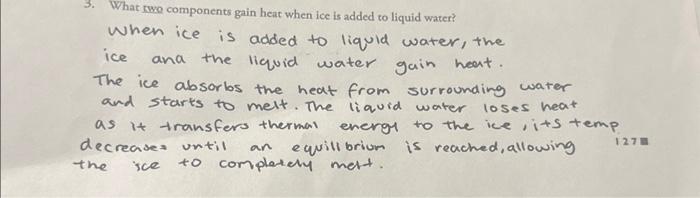 3. What two components gain heat when ice is added to liquid water?
When ice is added to liquid water, the
ice and the liquid water gain heat.
The ice absorbs the heat from surrounding water
and starts to melt. The liquid water loses heat
as it transfers thermal energy to the ice, its temp
decreases until an equillibrium is reached, allowing
127
the ice to completely melt.